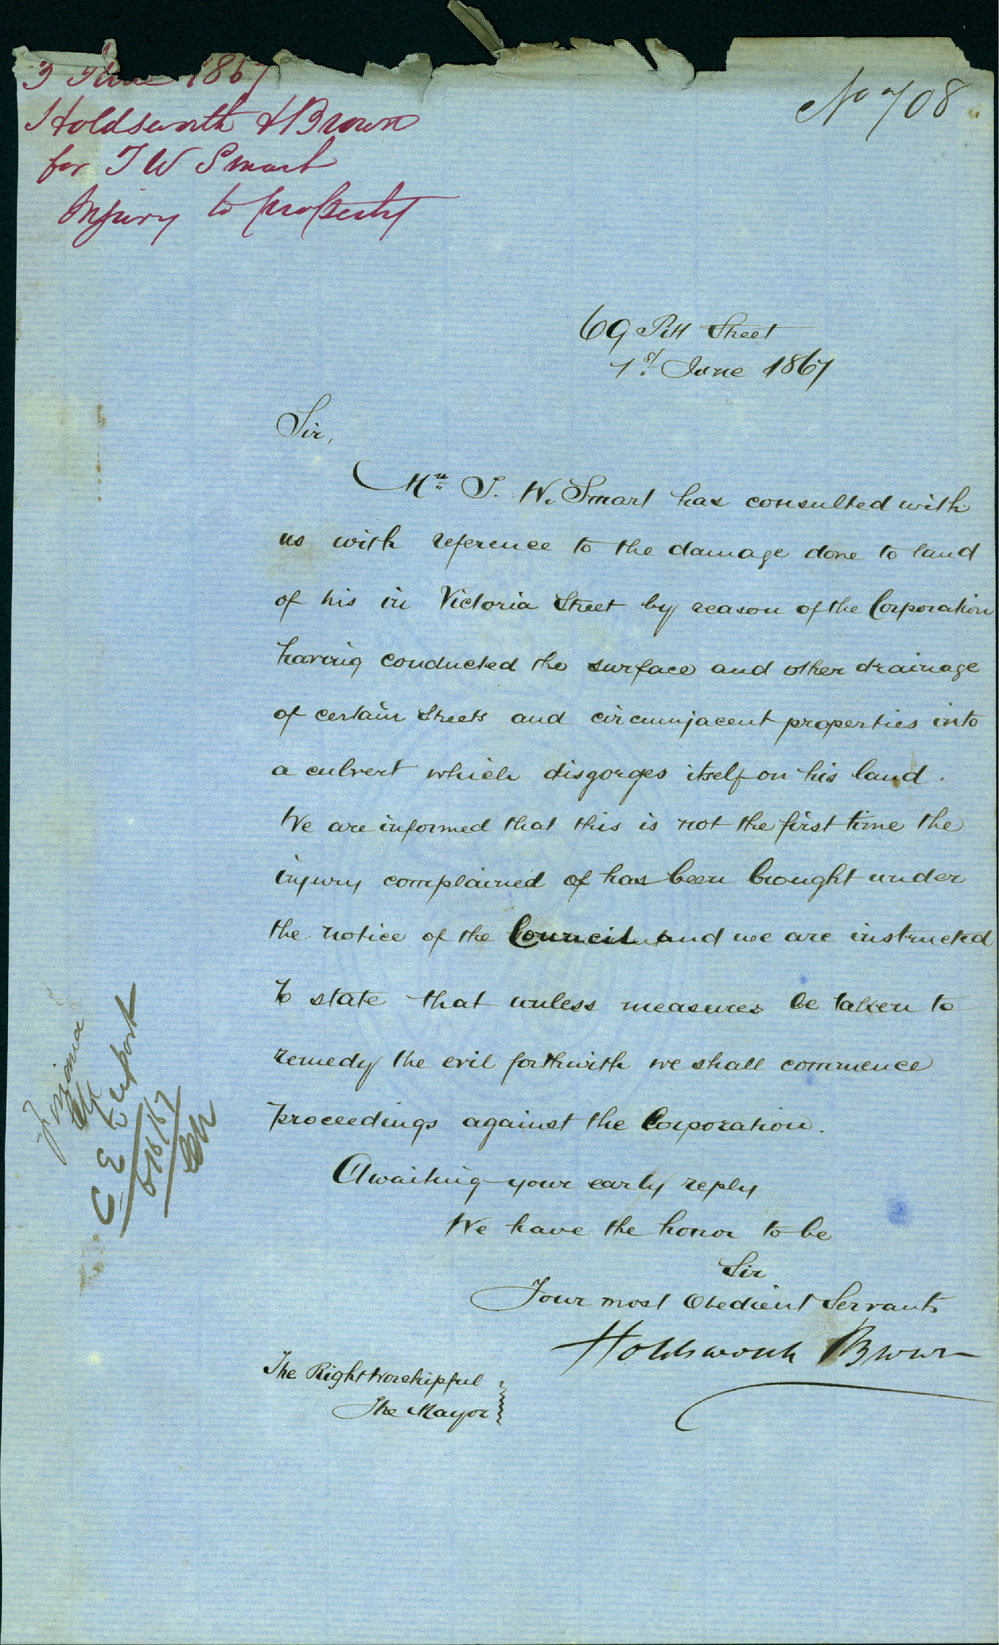 3 June 1867
Holdsworth & Brown
for T W Smart
Injury to property
No 708
69 Pitt Street
1st. June 1867
Sir,
Mr. T. W. Smart has consulted with
us with reference to the damage done to land
of his in Victoria Street by reason of the Corporation
having conducted the surface and other drainage
of certain Streets and circumjacent properties into
a culvert which disgorges itself on his land.
We are informed that this is not the first time the
injury complained of has been brought under
the notice of the Council and we are instructed
to state that unless measures be taken to
remedy the evil forthwith we shall commence
proceedings against the Corporation.
Awaiting your early reply
We have the honor to be
Sir
Your most Obedient Servants
Holdsworth Brown
The Right Worshipful
The Mayor
C. E Report
6/6/67